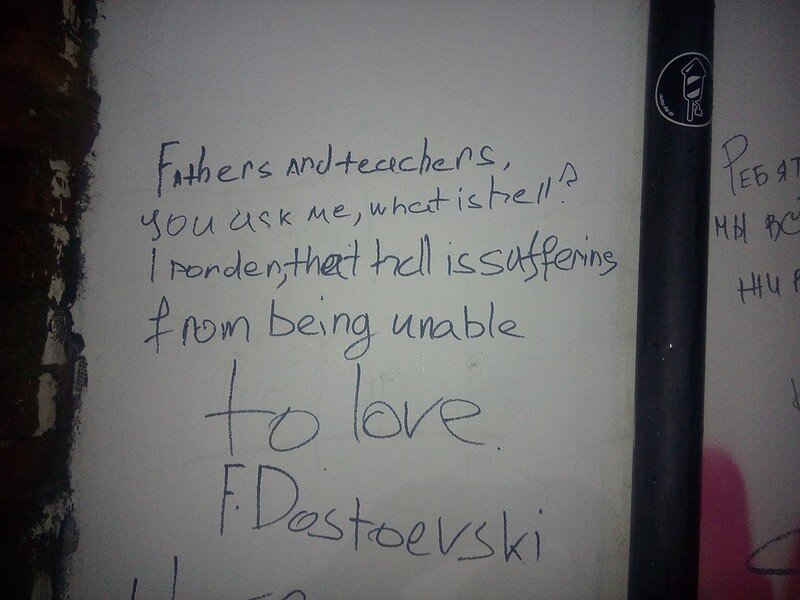 Fathers and teachers,
you ask me, what is hell?
I ponder, that hell is suffering
from being unable
to love.
F. Dostoevski
РЕБЯТ
МЫ ВС
ЖИВ